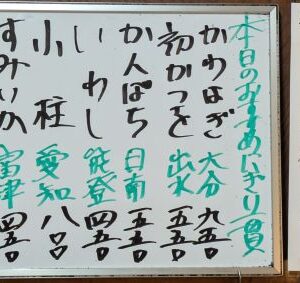 本日のおすすめにぎり一貫
かわはぎ 大分 九五〇
初かつを 出水 五五〇
かんぱち 日南 五五〇
いわし 能登 四五〇
小柱 愛知 八〇〇
すみいか 富津 四五〇